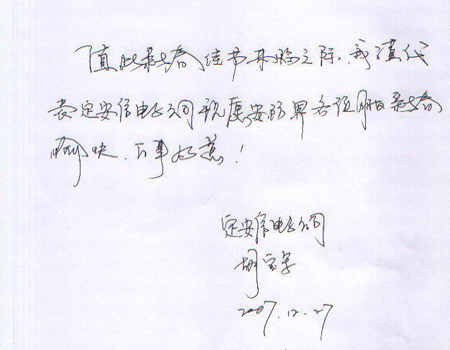 值此新春佳节来临之际，我谨代
表定安信电子公司祝愿安防界各位朋友新春
愉快，万事如意！
定安信电子公司
胡宝军
2007.12.27